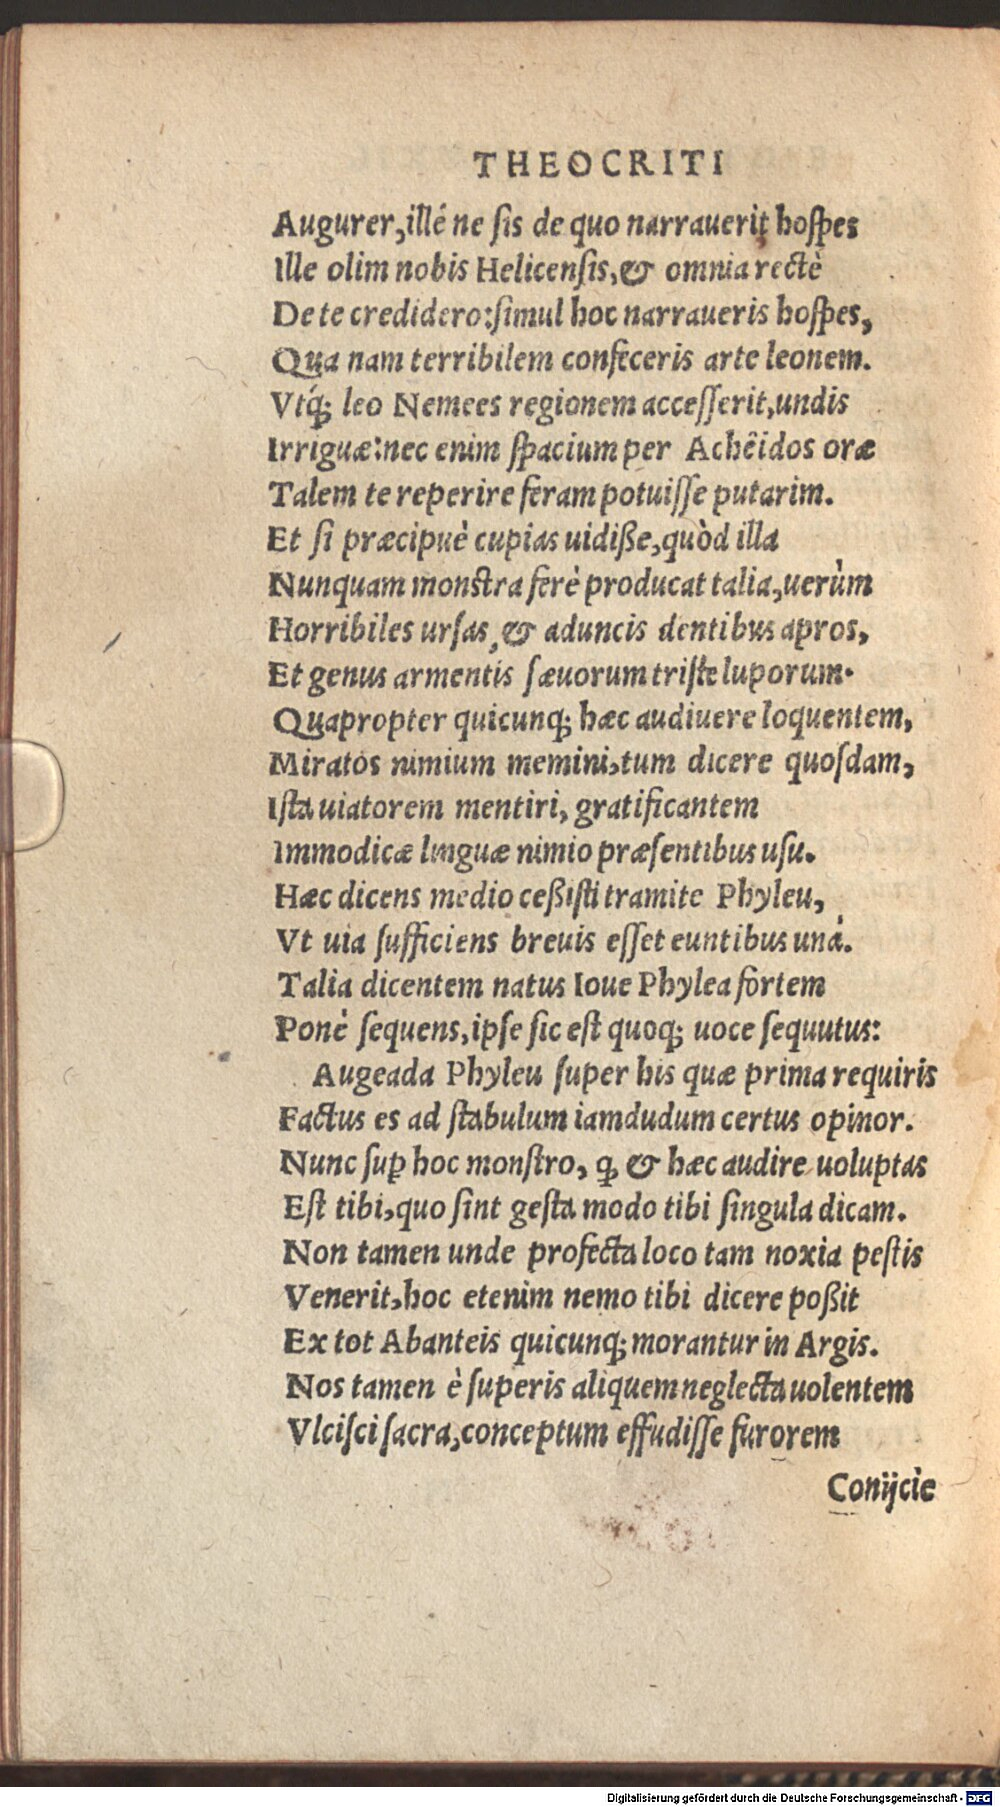 THEOCRITI
Augurer, illé ne sis de quo narrauerit hospes
Ille olim nobis Helicensis, & omnia rectè
De te credidero: simul hoc narraueris hospes,
Qua nam terribilem confeceris arte leonem.
Vtq́; leo Nemees regionem accesserit, undis
Irriguæ: nec enim spacium per Achêidos oræ
Talem te reperire feram potuisse putarim.
Et si præcipuè cupias uidiße, quòd illa
Nunquam monstra ferè producat talia, uerùm
Horribiles ursas, & aduncis dentibus apros,
Et genus armentis sæuorum triste luporum.
Quapropter quicunq; hæc audiuere loquentem,
Miratos nimium memini, tum dicere quosdam,
Ista uiatorem mentiri, gratificantem
Immodicæ linguæ nimio præsentibus usu.
Hæc dicens medio ceßisti tramite Phyleu,
Vt uia sufficiens breuis esset euntibus unà.
Talia dicentem natus Ioue Phylea fortem
Ponè sequens, ipse sic est quoq; uoce sequutus:
Augeada Phyleu super his quæ prima requiris
Factus es ad stabulum iamdudum certus opinor.
Nunc sup̱ hoc monstro, q̱ & hæc audire uoluptas
Est tibi, quo sint gesta modo tibi singula dicam.
Non tamen unde profecta loco tam noxia pestis
Venerit, hoc etenim nemo tibi dicere poßit
Ex tot Abanteis quicunq; morantur in Argis.
Nos tamen è superis aliquem neglecta uolentem
Vlcisci sacra, conceptum effudisse furorem
Conijcie
Digitalisierung gefördert durch die Deutsche Forschungsgemeinschaft - DFG